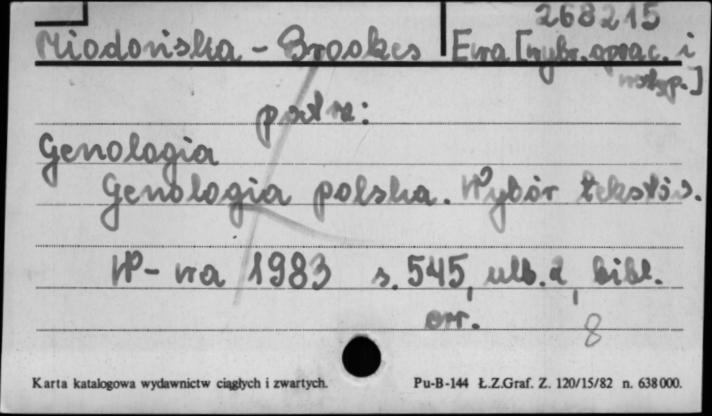 268215
Miodońska - Brookes Ewa [wybr. oprac. i
wstęp.]
patrz:
Genologia
Genologia polska. Wybór tekstów.
W-wa 1983 s. 545, ulb. 2, bibl.
err. 8
Karta katalogowa wydawnictw ciągłych i zwartych. Pu-B-144 Ł.Z.Graf. Z. 120/15/82 n. 638000.